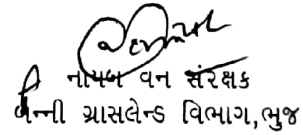 નાયબ વન સંરક્ષક
બન્ની ગ્રાસલેન્ડ વિભાગ, ભુજ